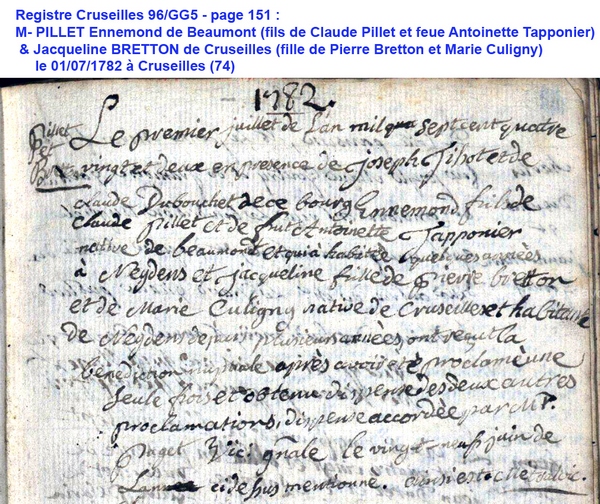 Registre Cruseilles 96/GG5 - page 151 :
M- PILLET Ennemond de Beaumont (fils de Claude Pillet et feue Antoinette Tapponier)
& Jacqueline BRETTON de Cruseilles (fille de Pierre Bretton et Marie Culigny)
le 01/07/1782 à Cruseilles (74)
1782.
pillet
et
Le premier juillet de l'an mil sept cent quatre
vingt et deux en presence de joseph et de
claude Dubouchet de ce bourg Ennemond fils de
claude pillet et de feue Antoinette Tapponier
native de beaumont et qui a habitée quelques années
à Neydens et jacqueline fille de pierre bretton
et de Marie Culigny native de Cruseilles et habitante
de Neydens depuis plusieurs années, ont reçut la
benediction nuptiale après avoir été proclamé une
seule fois et obtenu dispense des deux autres
proclamations, dispense accordée par M.
Puget Vic. gnale le vingt neuf juin de
l'année ci dessus mentionné. ainsi est